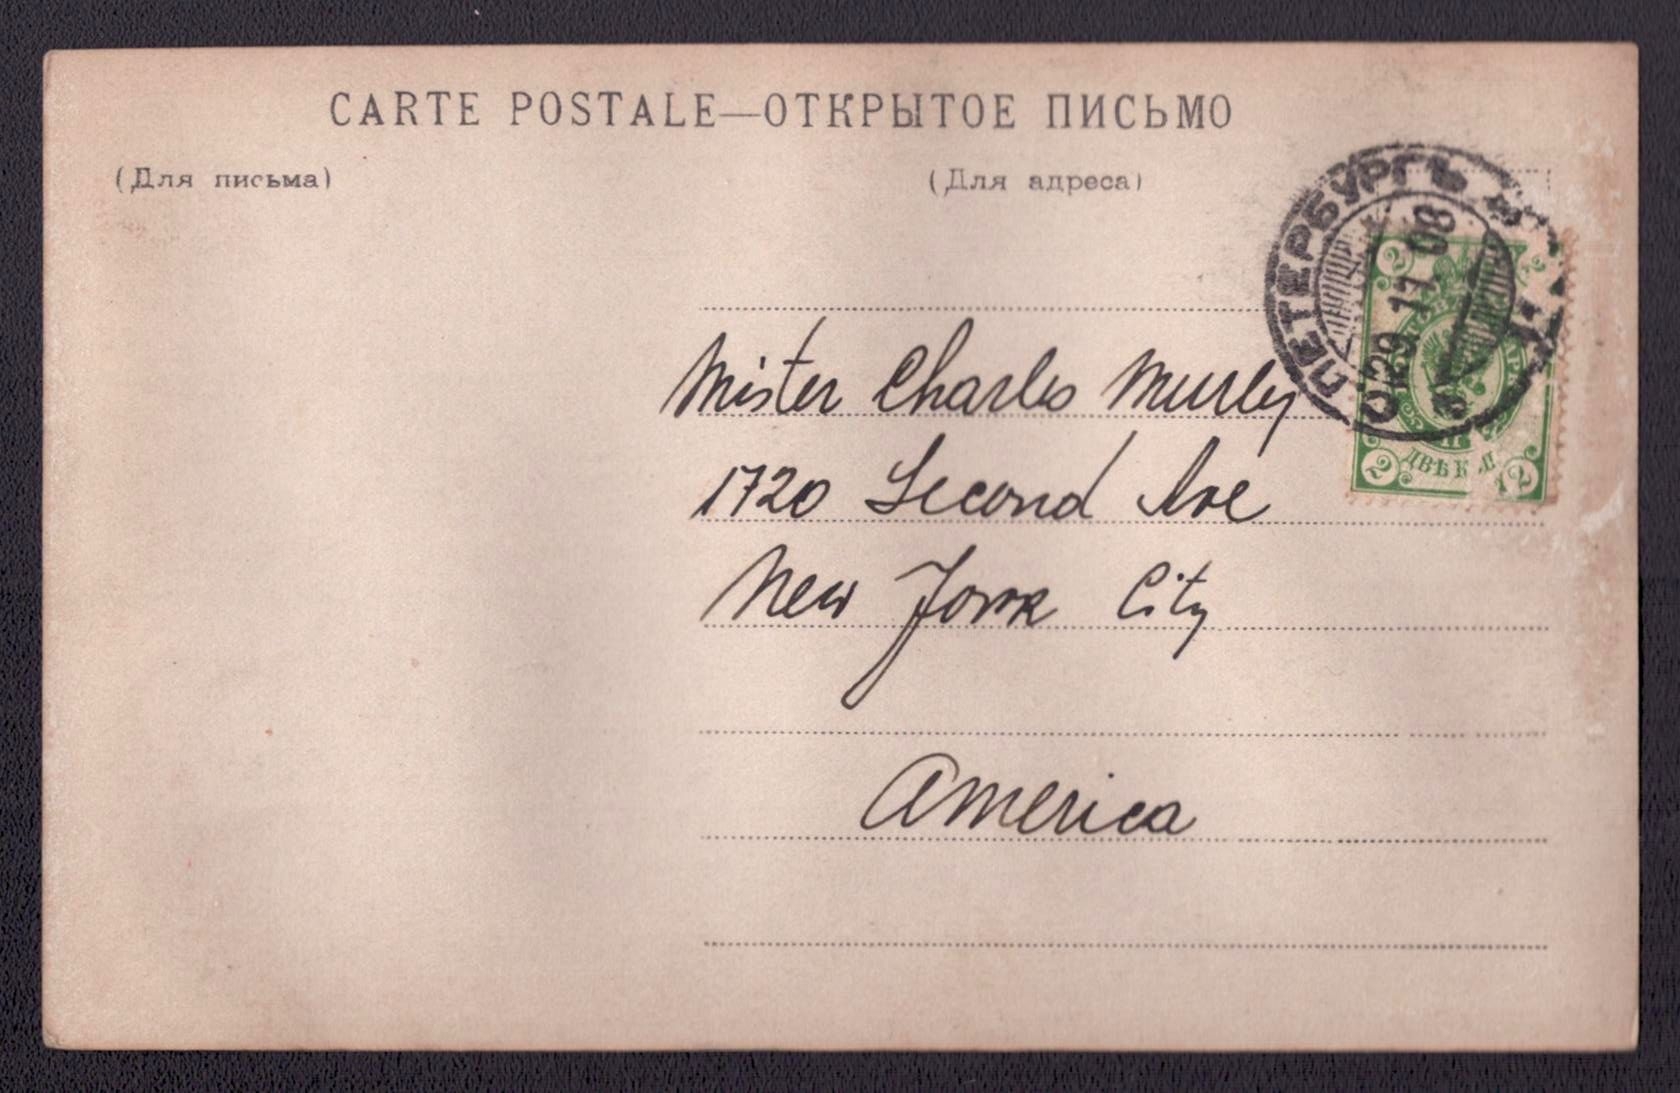 CARTE POSTALE—ОТКРЫТОЕ ПИСЬМО
(Для письма)
(Для адреса)
ПЕТЕРБУРГЪ
29 11 08
2 2
ДВѢ К
2 2
Mister Charles Murley
1720 Second Ave
New York City
America